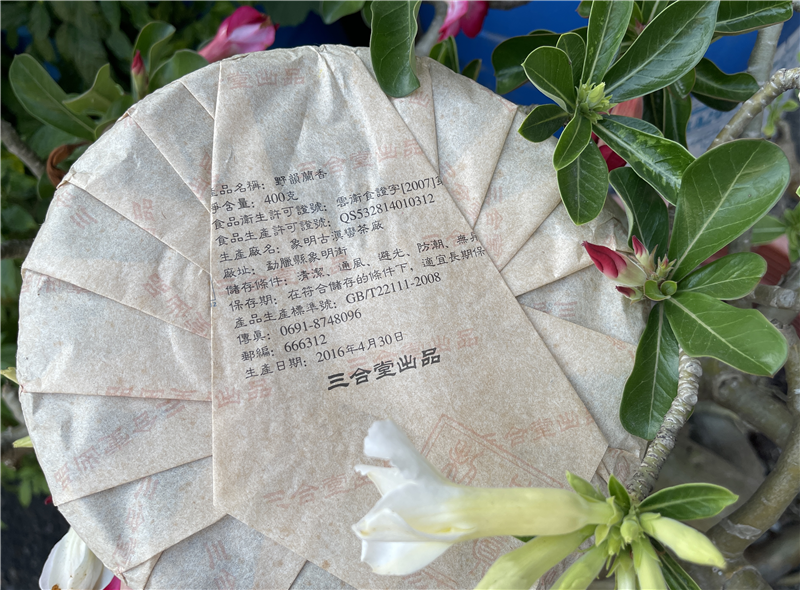 三合堂出品
產品名稱：野韻蘭香
淨含量：400克
食品衛生許可證號：雲衛食證字[2007]
食品生產許可證號：QS532814010312
生產廠名：象明古滇巒茶廠
廠址：勐臘縣象明街
儲存條件：清潔、通風、避光、防潮、無異
保存期：在符合儲存的條件下，適宜長期保
產品生產標準號：GB/T22111-2008
傳真：0691-8748096
郵編：666312
生產日期：2016年4月30日
三合堂出品
三合堂出品